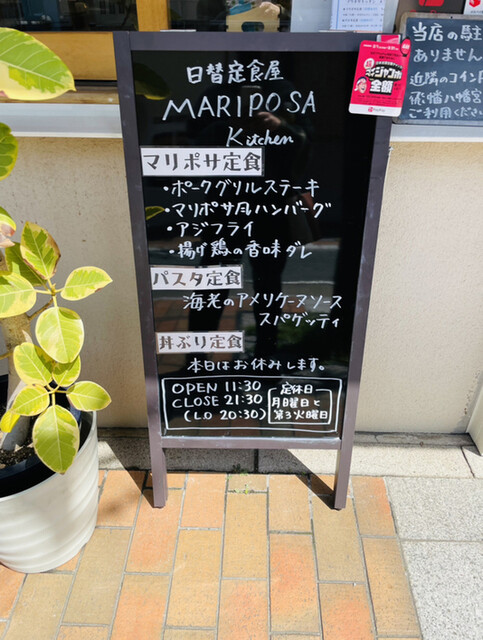 日替定食屋
MARIPOSA
Kitchen
マリポサ定食
・ポークグリルステーキ
・マリポサ風ハンバーグ
・アジフライ
・揚げ鶏の香味ダレ
パスタ定食
海老のアメリケーヌソース
スパゲッティ
丼ぶり定食
本日はお休みします。
OPEN 11:30
CLOSE 21:30
(LO 20:30)
定休日
月曜日と
第3火曜日
ジャンボ
全額
当店の駐
ありません
近隣のコインP
八幡宮
ご利用くださ